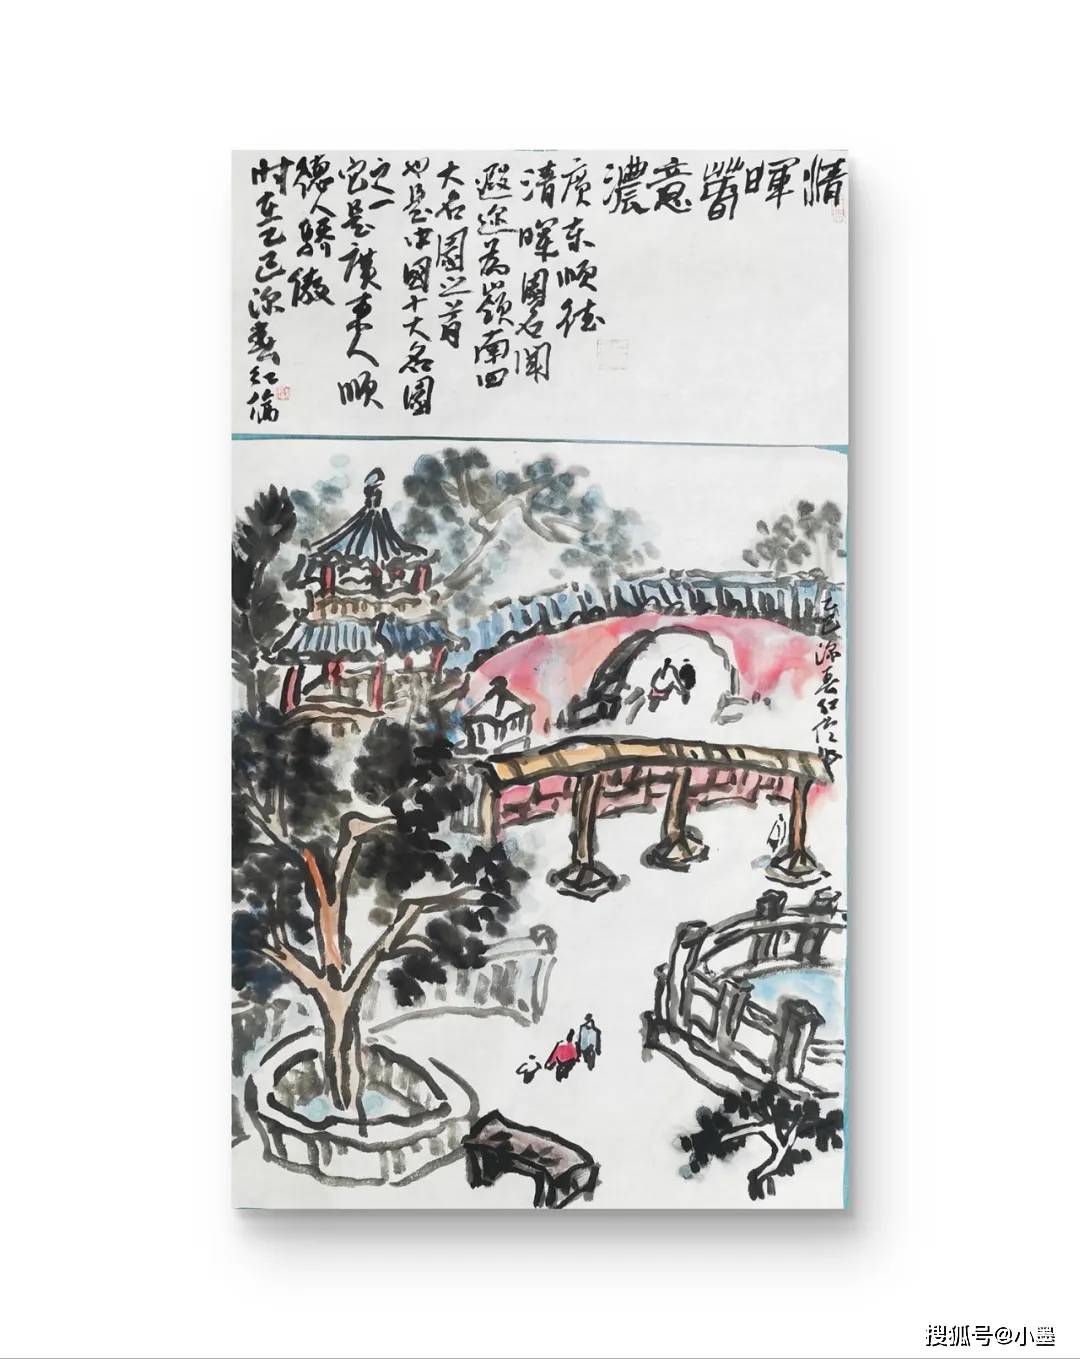 清暉萅意濃
廣东顺德
清暉園名聞
遐迩為嶺南四
大名園之首
也是中國十大名園
之一
它是廣東人顺
德人驕傲
时在乙巳深春红倫
乙巳深春红
搜狐号@小墨